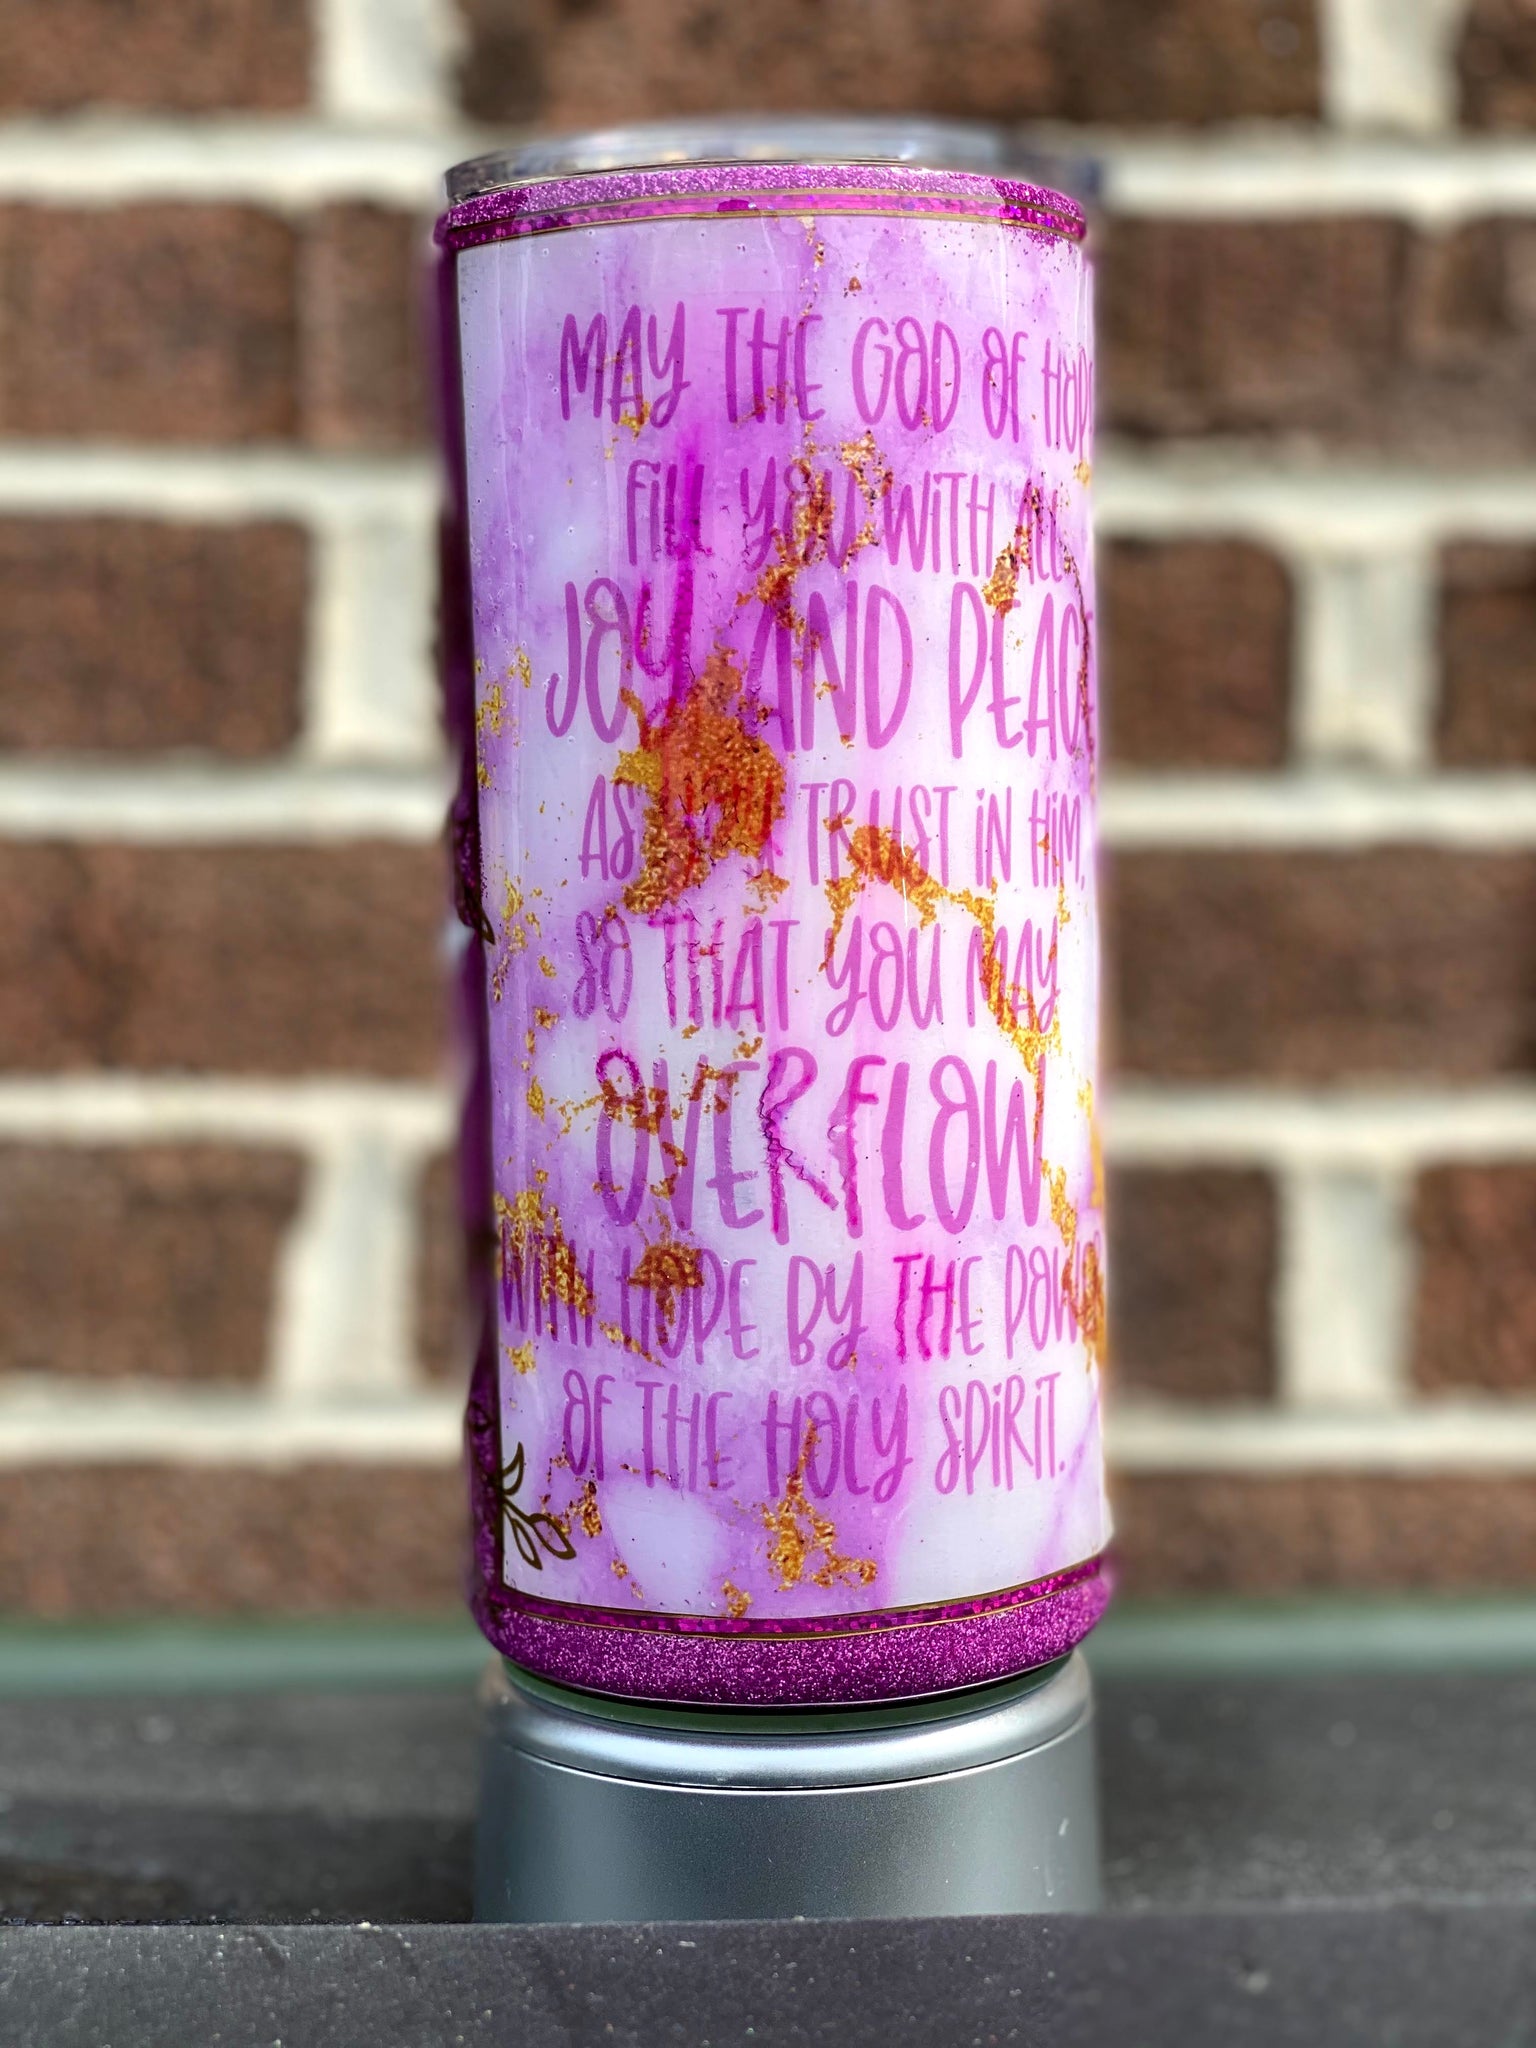 MAY THE GOD OF HOPE
FILL YOU WITH ALL
JOY AND PEACE
AS YOU TRUST IN HIM,
SO THAT YOU MAY
OVERFLOW
WITH HOPE BY THE POWER
OF THE HOLY SPIRIT.